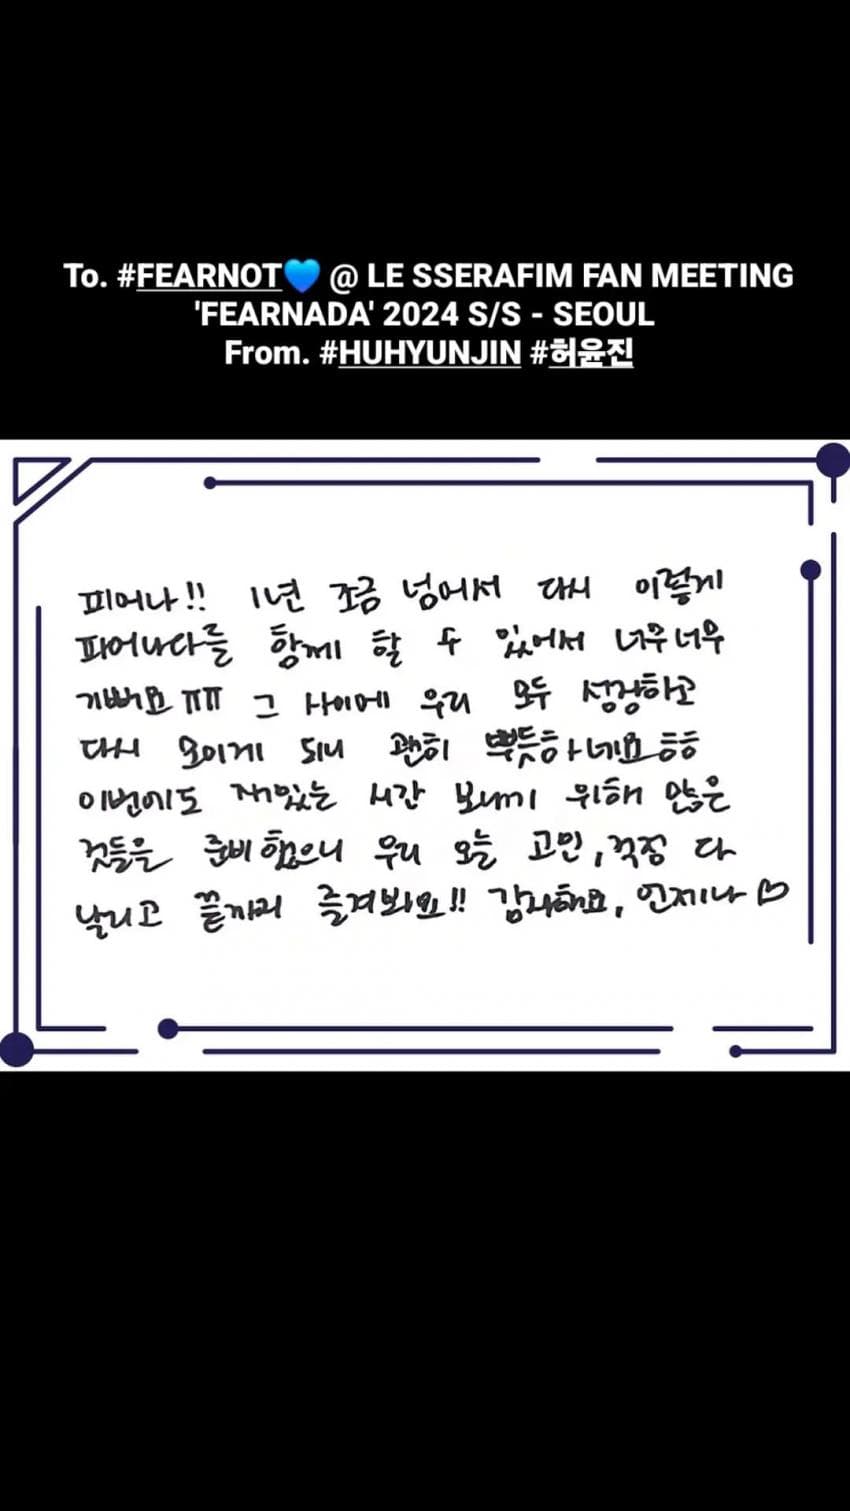 To. #FEARNOT💙 @ LE SSERAFIM FAN MEETING
'FEARNADA' 2024 S/S - SEOUL
From. #HUHYUNJIN #허윤진
피어나!! 1년 조금 넘어서 다시 이렇게
피어나다를 함께 할 수 있어서 너무너무
기뻐요ㅠㅠ 그 사이에 우리 모두 성장하고
다시 모이게 되니 괜히 뿌듯하네요ㅎㅎ
이번에도 재밌는 시간 보내기 위해 많은
것들을 준비했으니 우리 오늘 고민, 걱정 다
날리고 끝까지 즐겨봐요!! 감사해요, 언제나♡